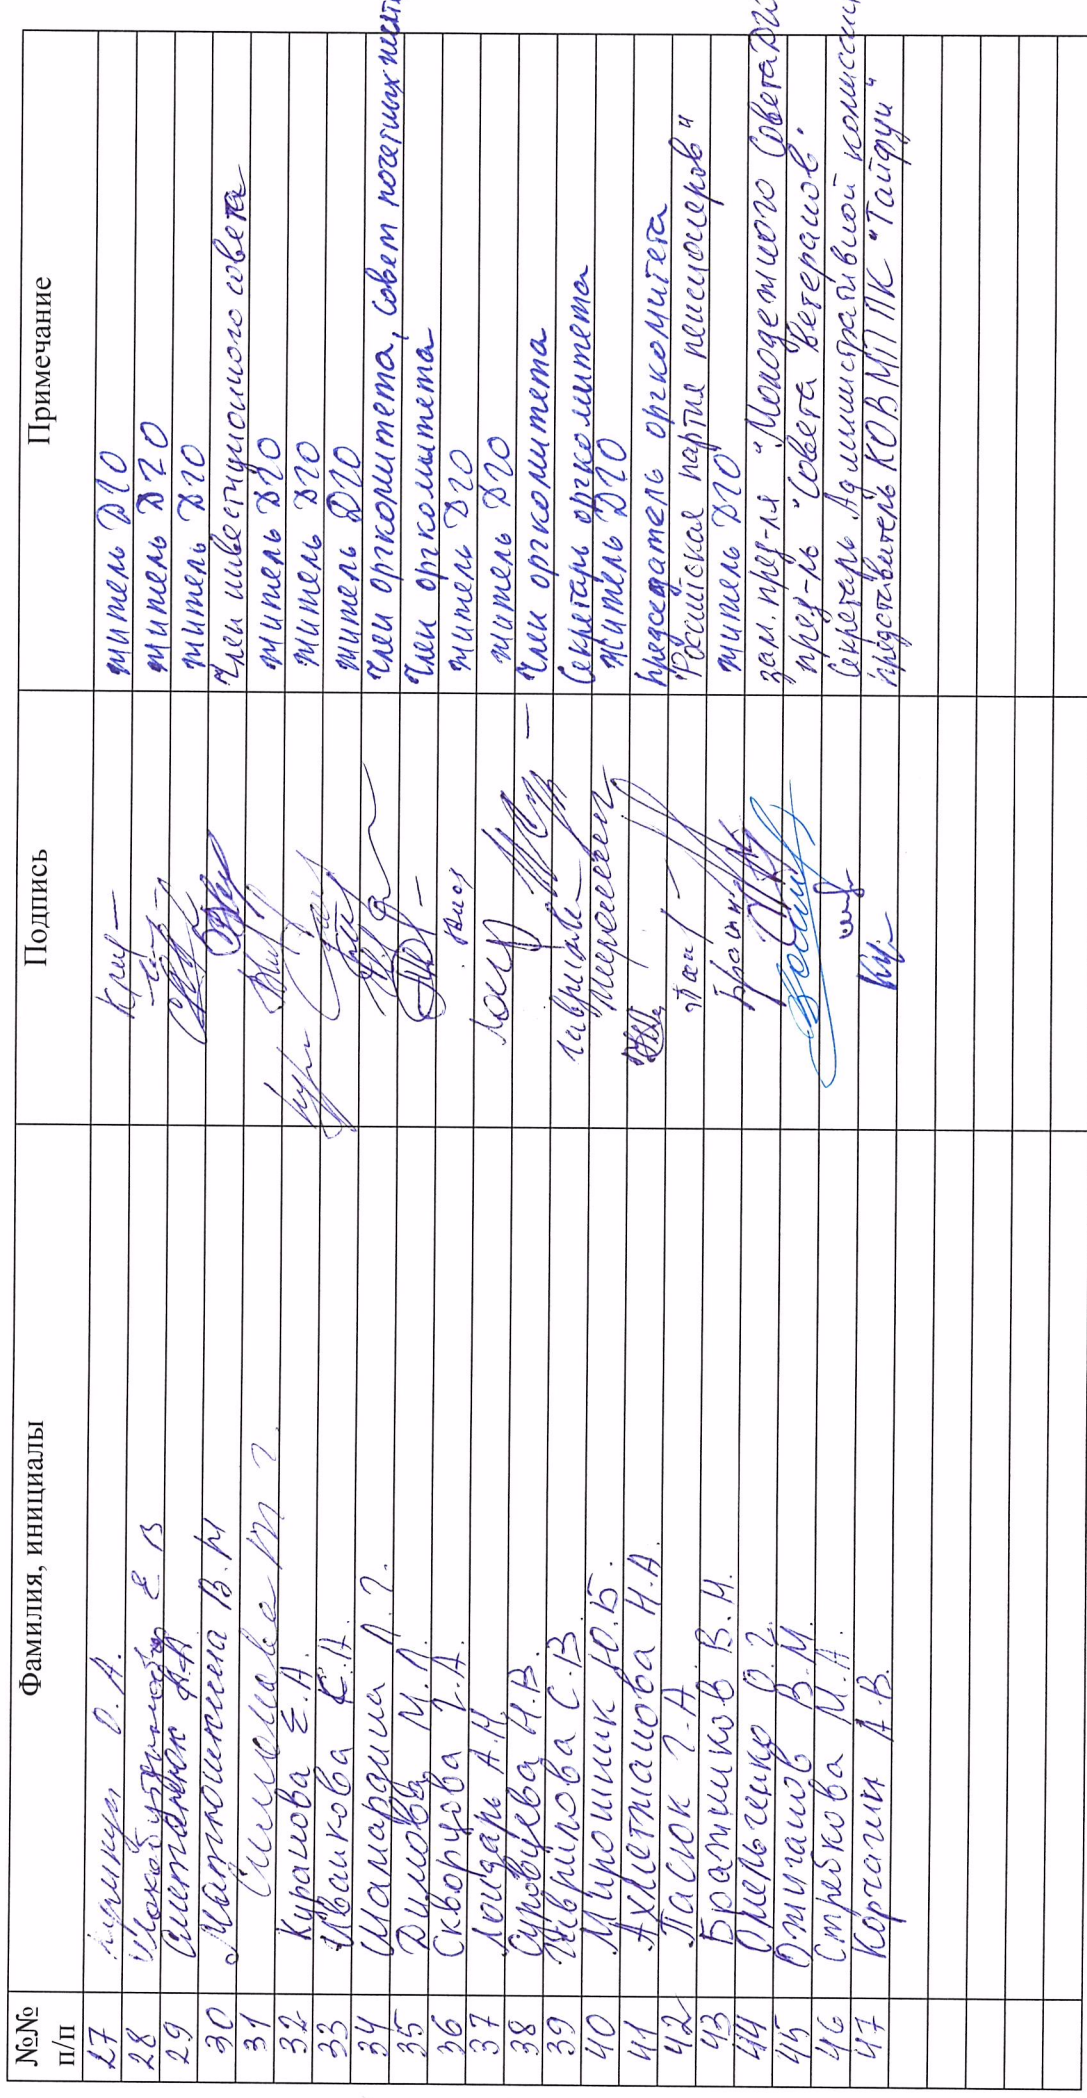 №№ п/п Фамилия, инициалы Подпись Примечание
27 О. А. житель ДГО
28 Е В житель ДГО
29 Сметанюк А.А житель ДГО
30 Матюшкина В.М член инвестиционного совета
31 Симонова Т Г. житель ДГО
32 Куранова Е.А. житель ДГО
33 Ивашкова С.А. житель ДГО
34 Шамардина Л.Г. член оргкомитета, Совет почетных
35 Дилова М.Л. член оргкомитета
36 Скворцова Г.А. житель ДГО
37 Лондарь А.Н. житель ДГО
38 Суровцева Н.В. член оргкомитета
39 Гаврилова С.В. Гаврилов Секретарь оргкомитета
40 Мирошник Ю.Б. житель ДГО
41 Ахметшанова Н.А. председатель оргкомитета
42 Пасюк Г.А. "Российская партия пенсионеров"
43 Бражников В.Н. житель ДГО
44 Омельченко О.Г. зам. пред-ля "Молодежного Совета ДГО
45 Ожиганов В.М. пред-ль "Совета Ветеранов".
46 Стребкова М.А. Секретарь Административной комиссии
47 Корчагин А.В. представитель КОВМППК "Тайфун"